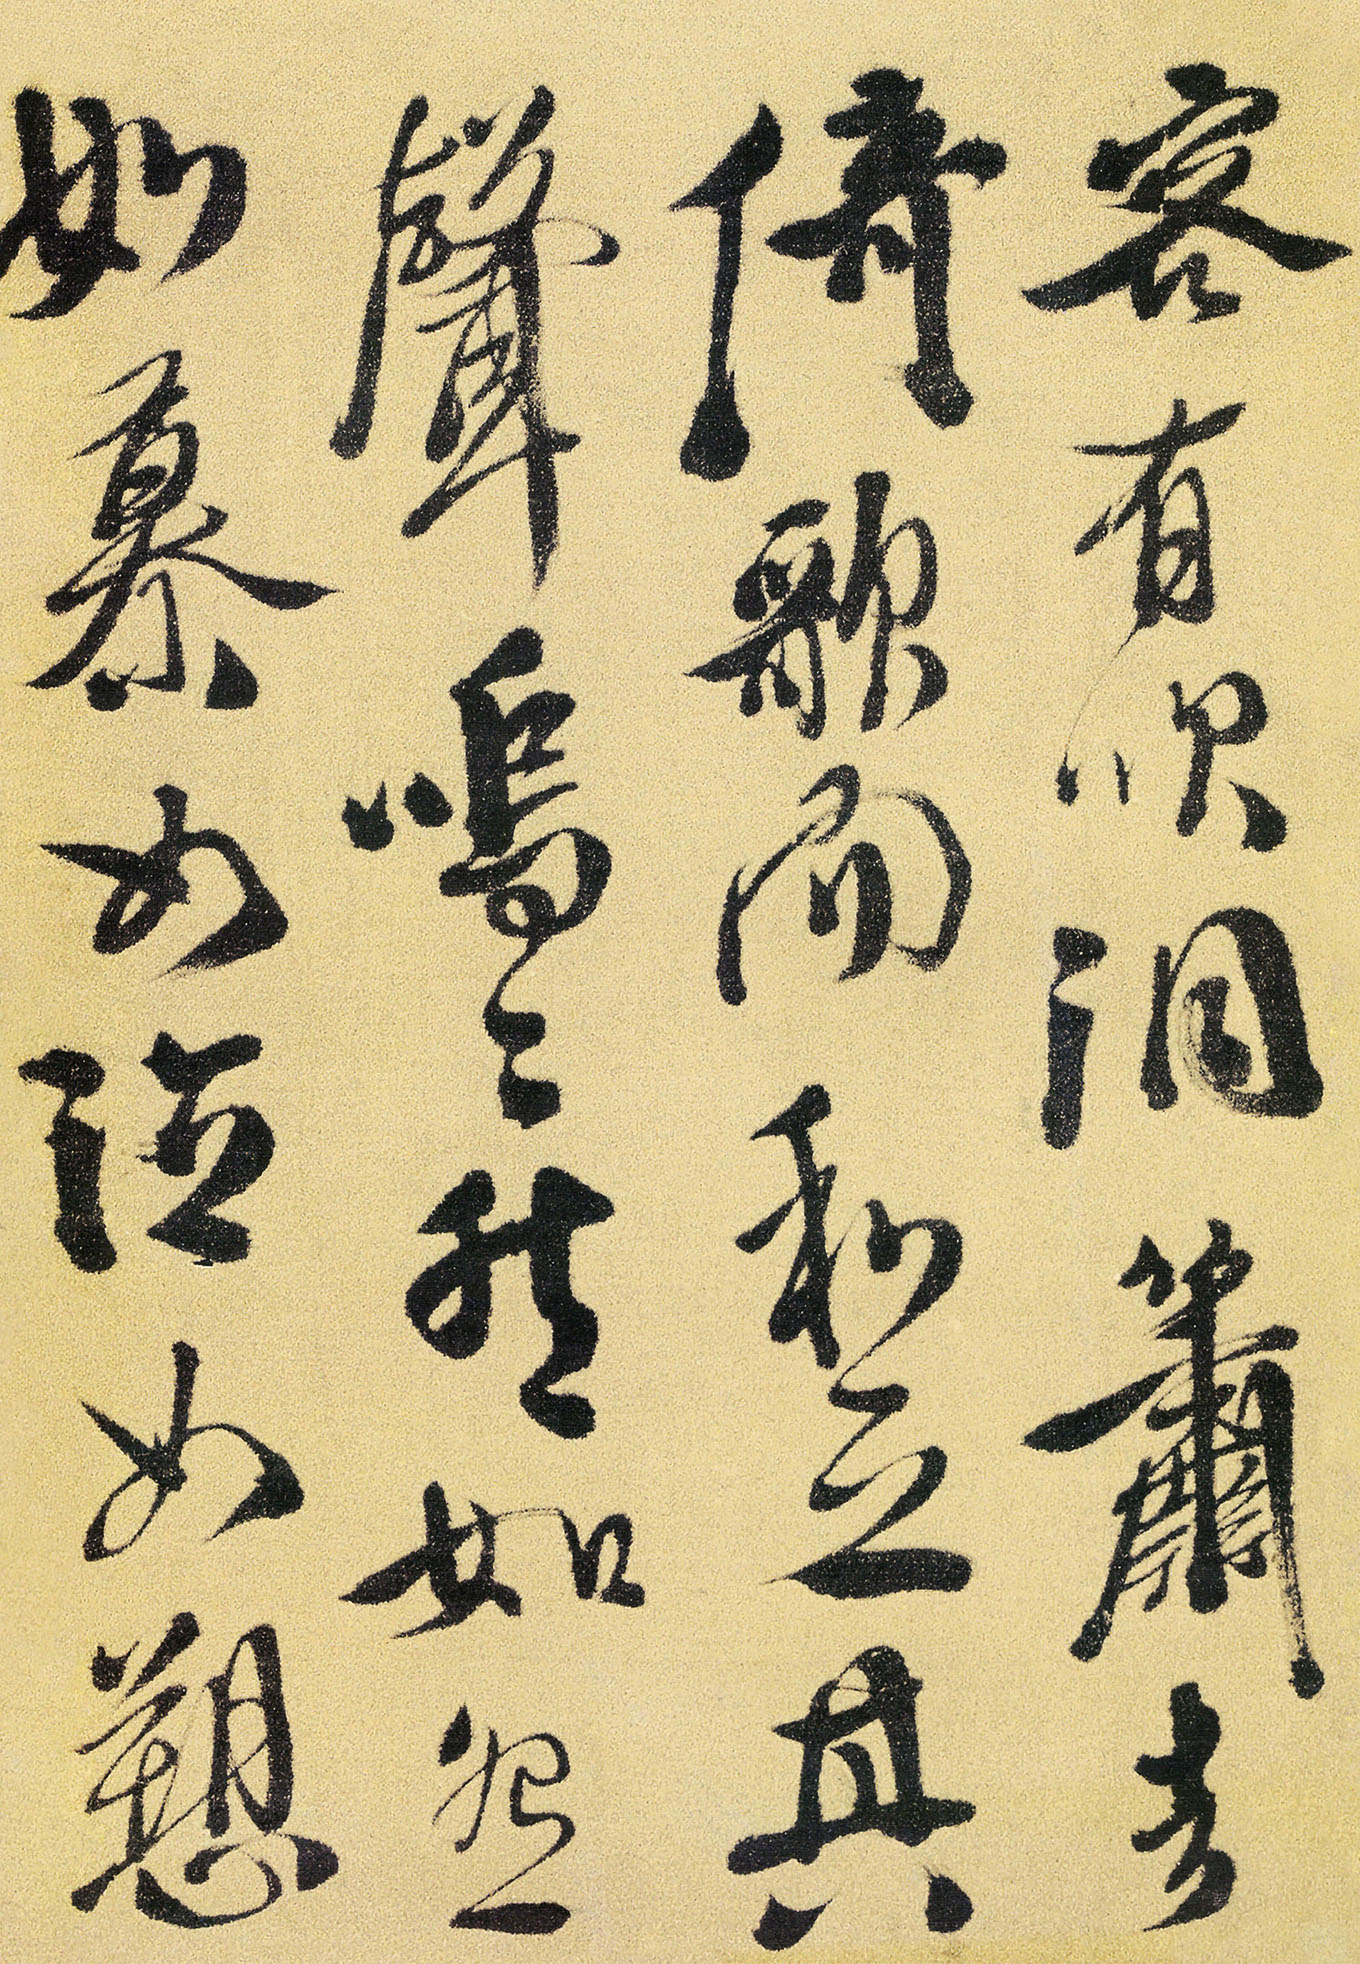 客有吹洞簫者
倚歌而和之其
聲嗚〻然如怨
如慕如泣如愬